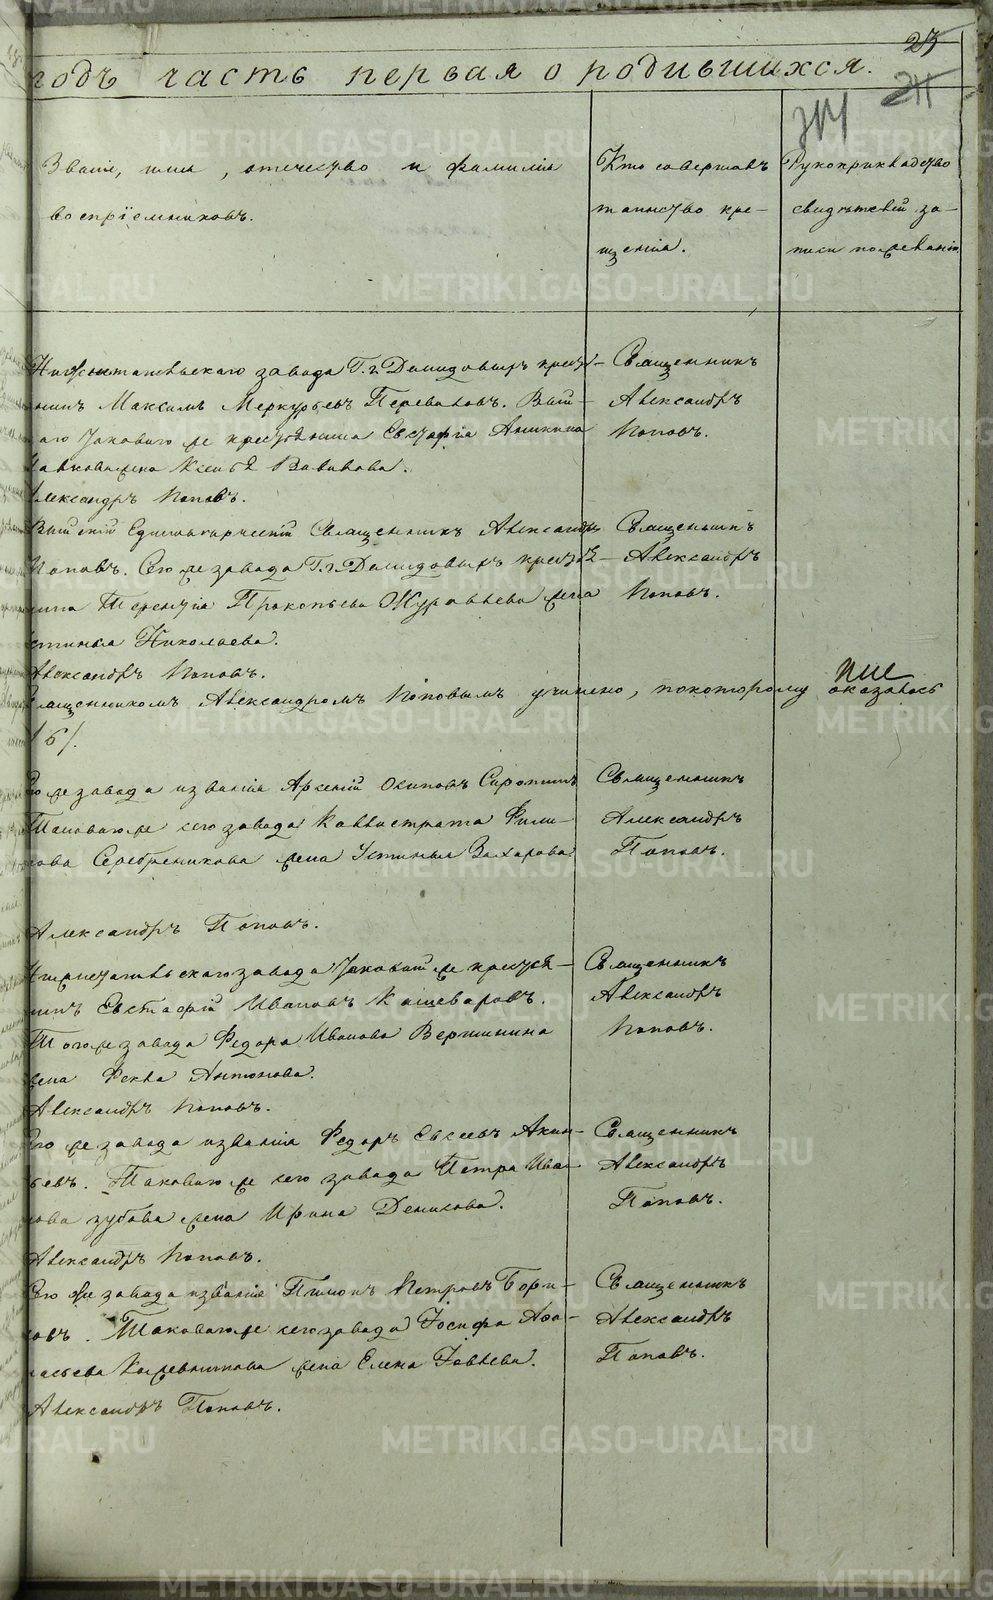 23
годъ часть первая о родившихся.
Званіе, имя, отечество и фамилія
воспріемниковъ.
Кто совершалъ
таинство кре-
щенія.
Рукоприкладство
свидѣтелей за-
писи по желанію.
завода Г.г. Демидовыхъ кресть-
нинъ Максимъ Меркурьевъ Переваловъ. Вый-
Евстафія Аникина
жена Вавилова.
Александръ Поповъ.
Священникъ
Александръ
Поповъ.
Выйскій Единовѣрческій Священникъ Александръ
Поповъ. Сего же завода Г.г. Демидовыхъ крестья-
нина Терентія Прокопьева Журавлева жена
Николаева.
Александръ Поповъ.
Священникъ
Александръ
Поповъ.
Священникомъ Александромъ Поповымъ учинено, по которому оказалось
/6/.
же завода званія Арсеній Осиповъ Сиротинъ
Таковаго же сего завода Каллистрата Фили-
Серебреникова жена Устинья Захарова.
Александръ Поповъ.
Священникъ
Александръ
Поповъ.
завода таковый же крестья-
нинъ Евстафій Ивановъ Кашеваровъ.
Того же завода Федора Иванова Вершинина
жена Фекла Антонова.
Александръ Поповъ.
Священникъ
Александръ
Поповъ.
же завода званія Федоръ Евсеевъ Акин-
Таковаго же сего завода Петра Ива-
нова Зубова жена Ирина Денисова.
Александръ Поповъ.
Священникъ
Александръ
Поповъ.
же завода званія Пименъ Петровъ Бори-
совъ. Таковаго же сего завода Іосифа Афо-
насьева жена Елена Іовлева.
Александръ Поповъ.
Священникъ
Александръ
Поповъ.
METRIKI.GASO-URAL.RU